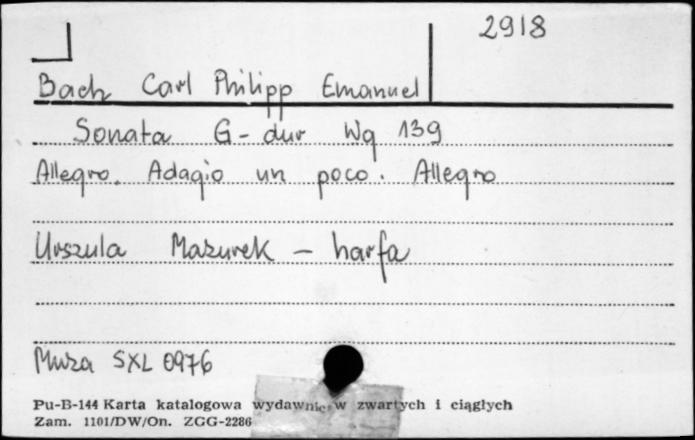 2918
Bach Carl Philipp Emanuel
Sonata G-dur Wq 139
Allegro. Adagio un poco. Allegro
Urszula Mazurek – harfa
Muza SXL 0976
Pu-B-144 Karta katalogowa wydawnic w zwartych i ciągłych
Zam. 1101/DW/On. ZGG-2286